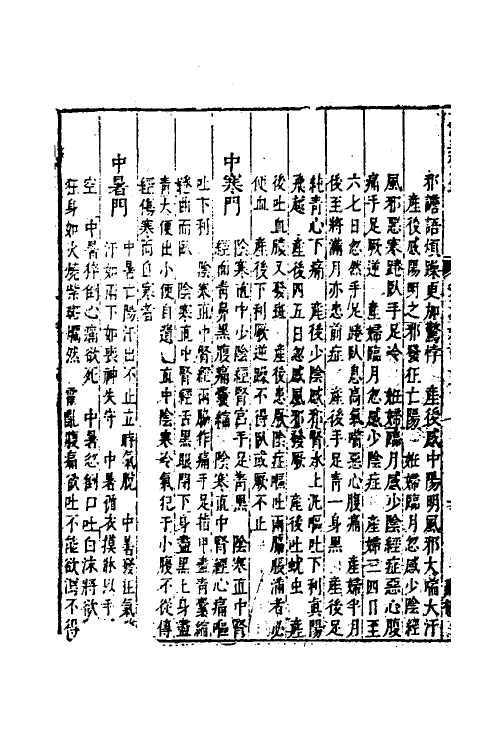 邪譫語煩躁更加驚悸　產後感中陽明風邪大喘大汗
產後感陽明之邪發狂亡陽　妊婦臨月忽感少陰經
風邪惡寒踡臥手足冷　妊婦臨月感少陰經症惡心腹
痛手足厥逆　產婦臨月忽感少陰症　產婦三四日至
六七日忽然手足踡臥息高氣喘惡心腹痛　產婦半月
後至將滿月亦患前症　產後手足青一身黑　產後足
純青心下痛　產後少陰感邪腎水上泛嘔吐下利真陽
飛越　產後四五日忽感風邪發厥　產後吐蚘虫　產
後吐血腹又發斑　產後患厥陰症嘔吐兩脇脹滿者必
便血　產後下利厥逆躁不得臥或厥不止
中寒門
陰寒直中少陰經腎宮手足青黑　陰寒直中腎
經面青鼻黑腹痛囊縮　陰寒直中腎經心痛嘔
吐下利　陰寒直中腎經兩脇作痛手足指甲盡青囊縮
踡曲而臥　陰寒直中腎經舌黑眼閉下身盡黑上身盡
青大便出小便自遺　直中陰寒冷氣犯于小腹不從傳
經傷寒而自寒者
中暑門
中暑亡陽汗出不止立時氣脫　中暑發狂氣
汗如雨下如喪神失守　中暑循衣摸牀以手
空　中暑猝倒心痛欲死　中暑忽倒口吐白沫將欲
狂身如火燒紫斑爛然　霍亂腹痛欲吐不能欲瀉不得